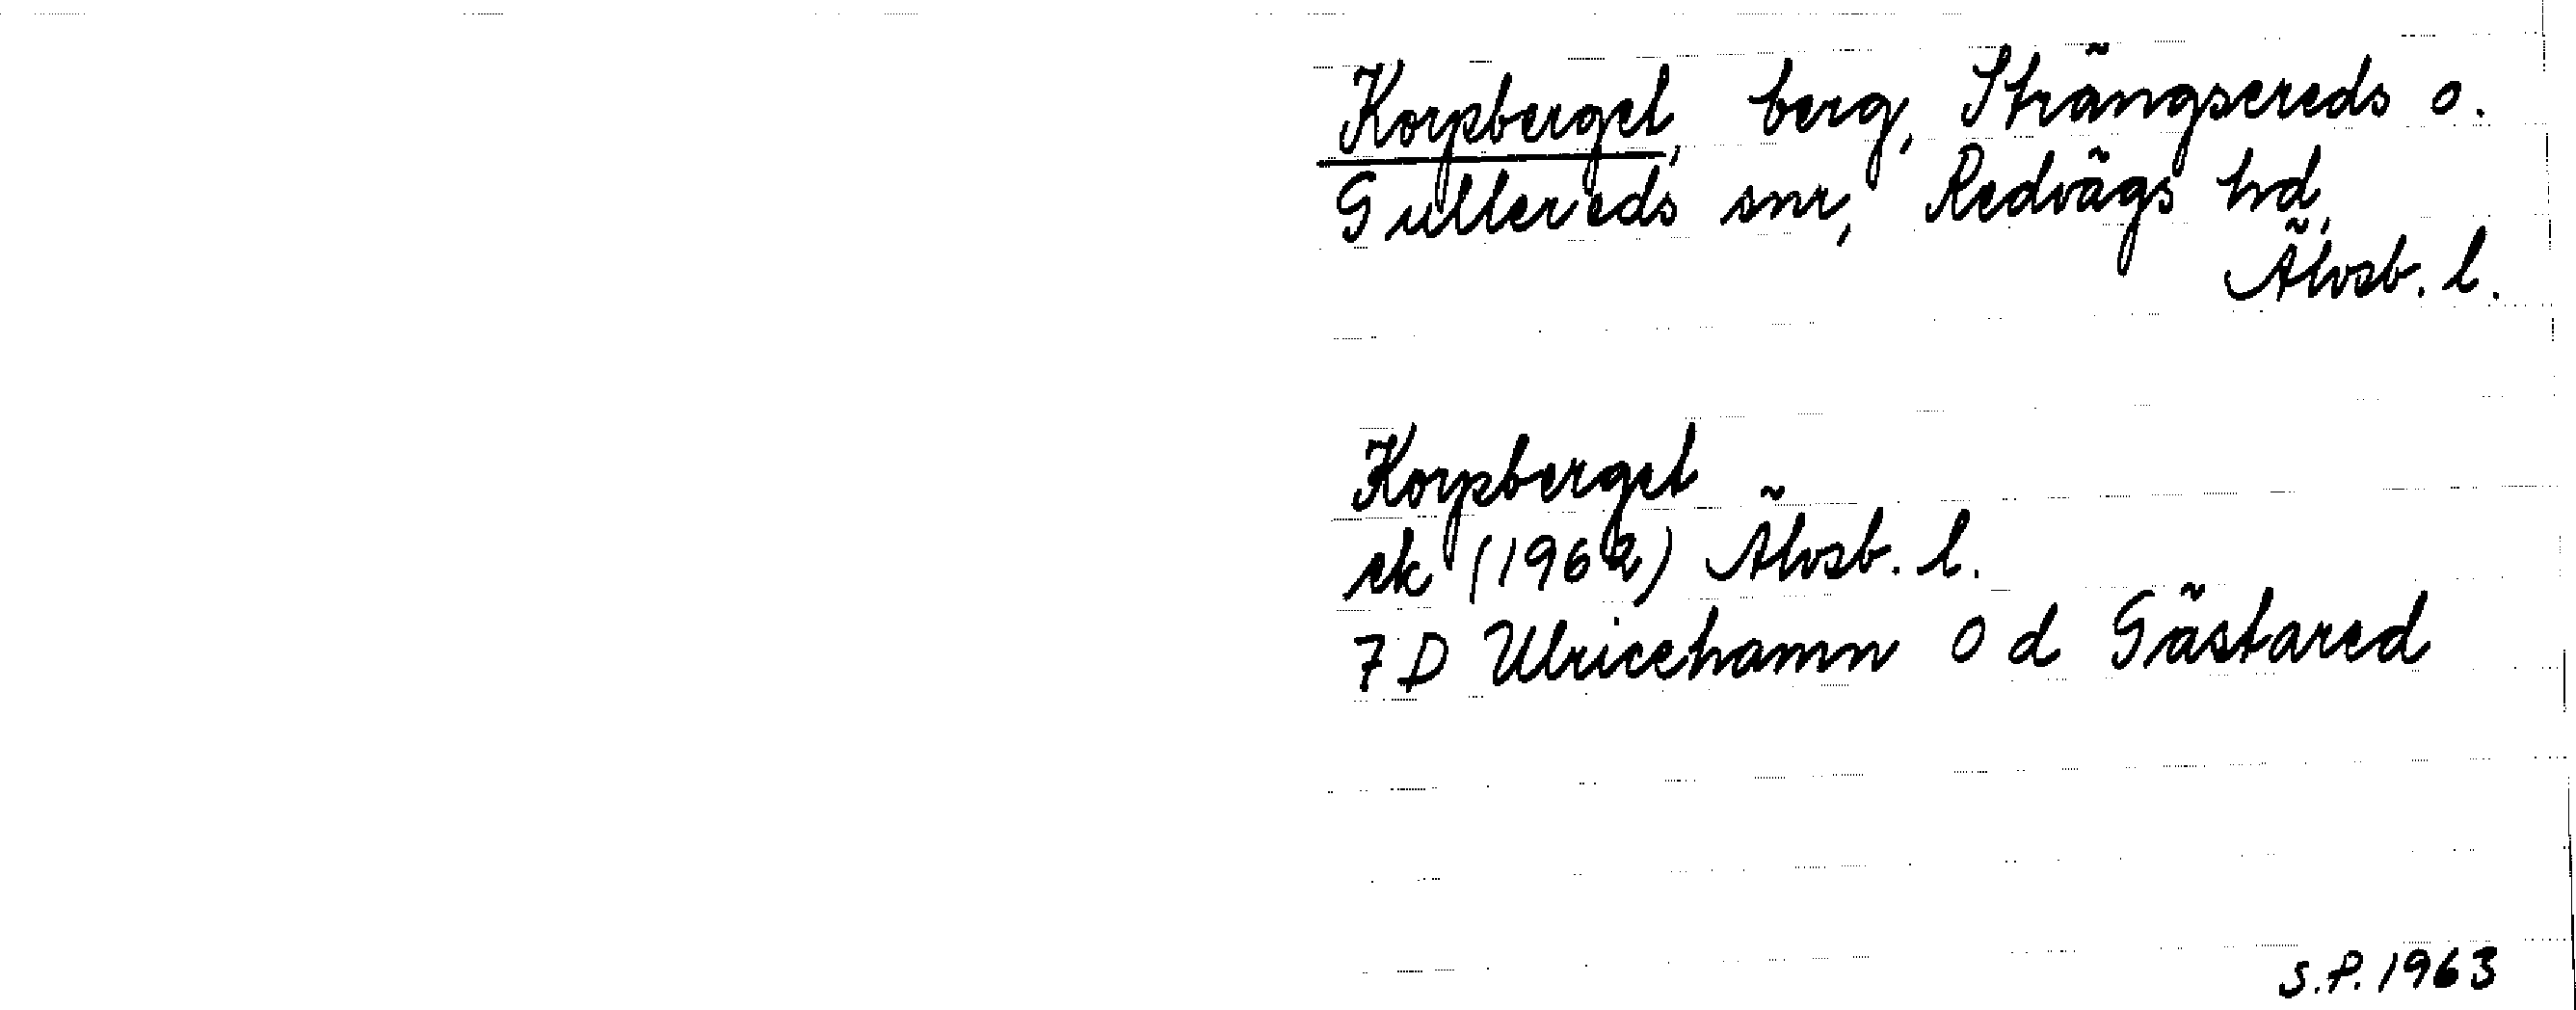 Korpberget, berg, Strängsereds o.
Gullereds snr, Redvägs hd,
Älvsb. l.
Korpberget
ek (1962) Älvsb. l.
7 D Ulricehamn 0 d Gästared
S.P. 1963